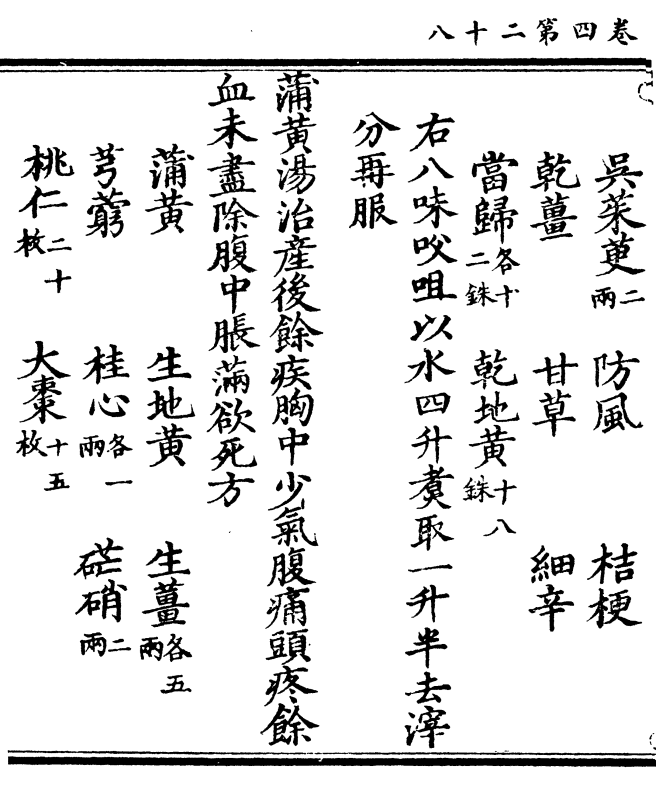 卷四第二十八
吳茱萸二兩 防風 桔梗
乾薑 甘草 細辛
當歸各十二銖 乾地黃十八銖
右八味㕮咀以水四升煑取一升半去滓
分再服
蒲黃湯治產後餘疾胸中少氣腹痛頭疼餘
血未盡除腹中脹滿欲死方
蒲黃 生地黃 生薑各五兩
芎藭 桂心各一兩 硭硝二兩
桃仁二十枚 大棗十五枚